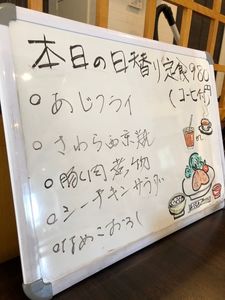 本日の日替り定食980
(コーヒー付)
○あじフライ
○さわら西京焼
○豚肉煮物
○シーチキンサラダ
○なめこおろし